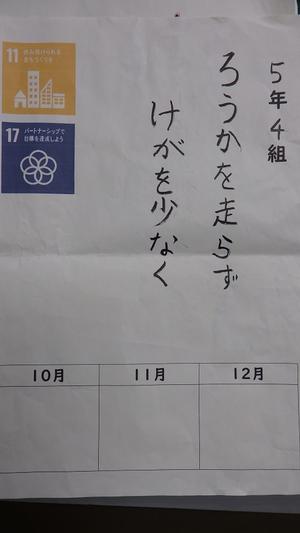 5年4組
ろうかを走らず
けがを少なく
11 住み続けられる
まちづくりを
17 パートナーシップで
目標を達成しよう
10月 11月 12月